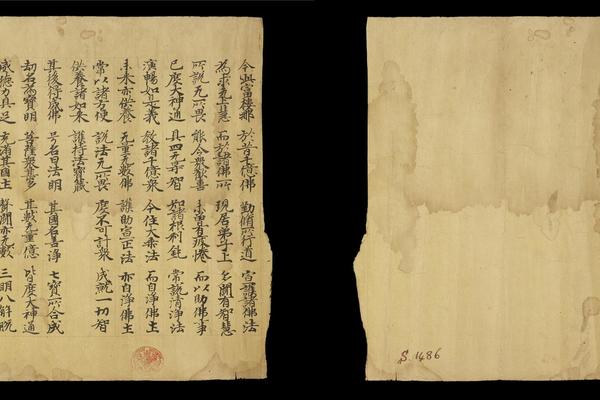 今此富樓那 於昔千億佛 勤脩所行道 宣護諸佛法
為求无上慧 而於諸佛所 現居弟子上 多聞有智慧
所說无所畏 能令衆歡喜 未曾有疲惓 而以助佛事
已度大神通 具四无㝵智 知諸根利鈍 常說清淨法
演暢如是義 教諸千億衆 令住大乘法 而自淨佛土
未來亦供養 无量无數佛 護助宣正法 亦自淨佛土
常以諸方便 說法无所畏 度不可計衆 成就一切智
供養諸如來 護持法寶藏
其後得成佛 号名曰法明 其國名善淨 七寶所合成
劫名為寶明 菩薩衆甚多 其數无量億 皆度大神通
威德力具足 充滿其國土 聲聞亦无數 三明八解脫
S. 1486